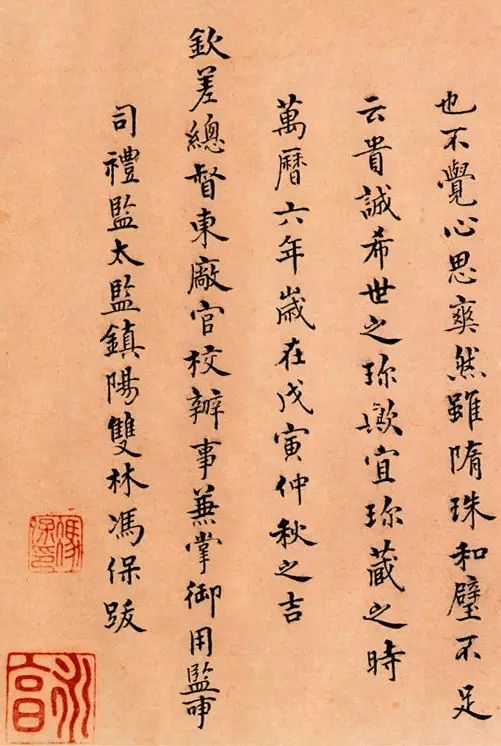 也不覺心思爽然雖隋珠和璧不足
云貴誠希世之珎歟宜珎藏之時
萬曆六年歲在戊寅仲秋之吉
欽差總督東廠官校辦事兼掌御用監事
司禮監太監鎮陽雙林馮保跋
馮保